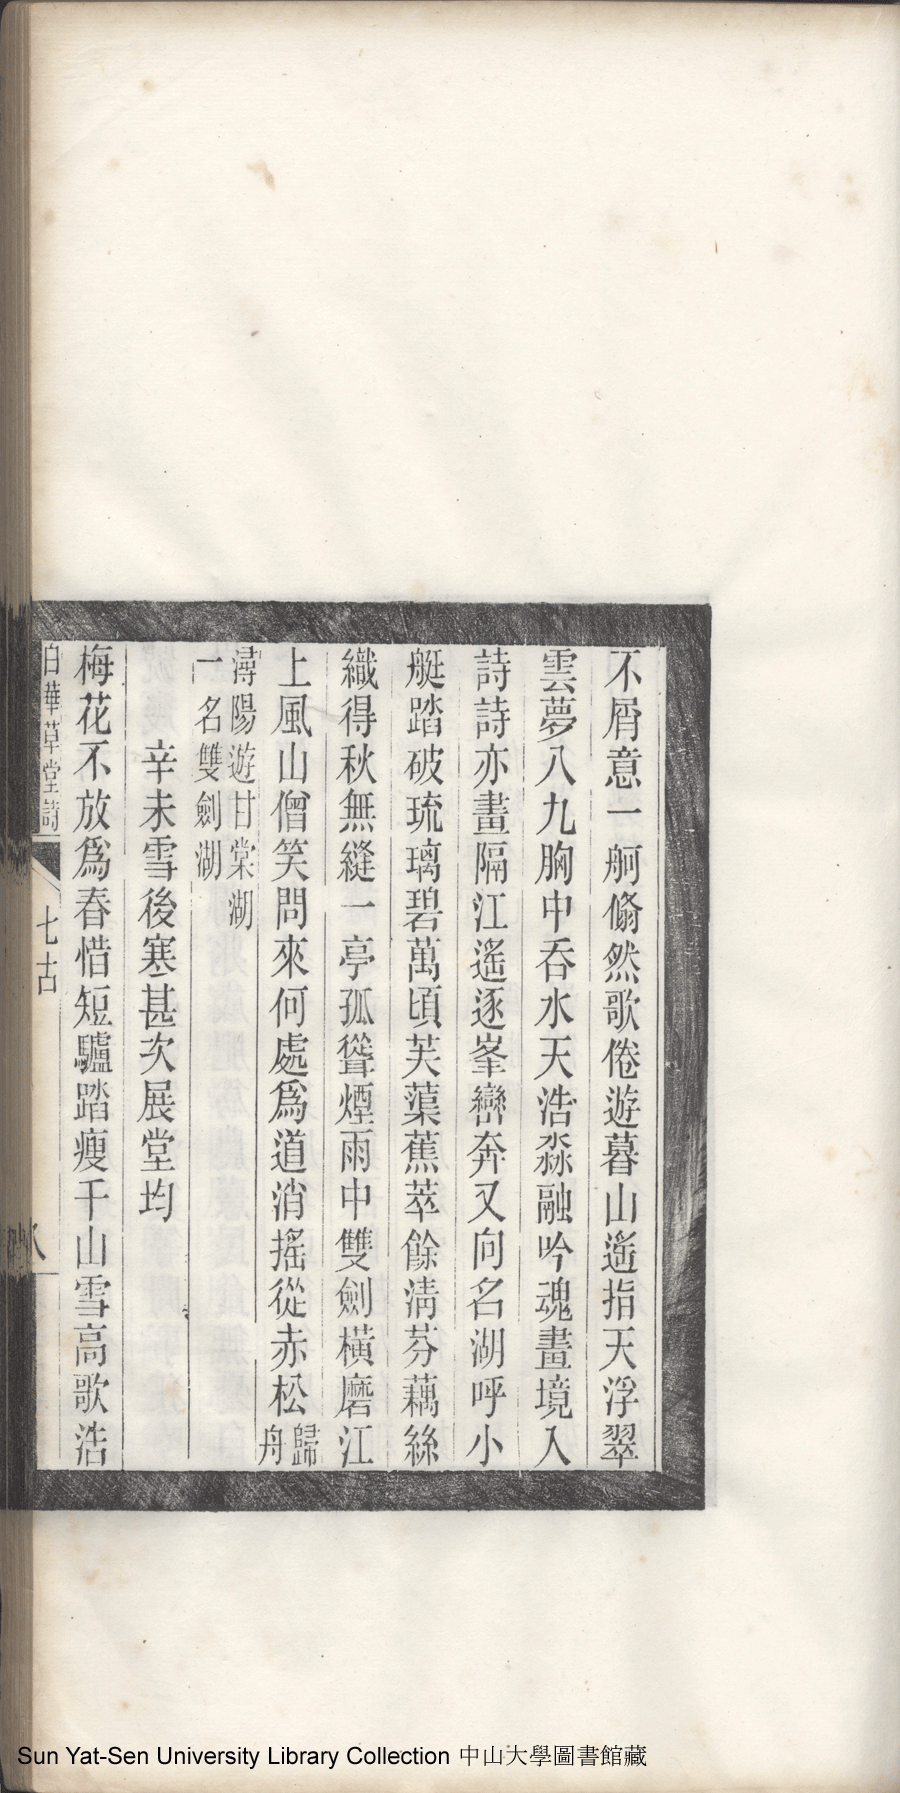 不屑意一舸翛然歌倦遊暮山遙指天浮翠
雲夢八九胸中吞水天浩淼融吟魂畫境入
詩詩亦畫隔江遙逐峯巒奔又向名湖呼小
艇踏破琉璃碧萬頃芙蕖蕉萃餘淸芬藕絲
織得秋無縫一亭孤聳煙雨中雙劍橫磨江
上風山僧笑問來何處爲道消搖從赤松歸舟
潯陽遊甘棠湖
一名雙劍湖
辛未雪後寒甚次展堂均
梅花不放爲春惜短驢踏瘦千山雪高歌浩
白華草堂詩
七古
Sun Yat-Sen University Library Collection 中山大學圖書館藏